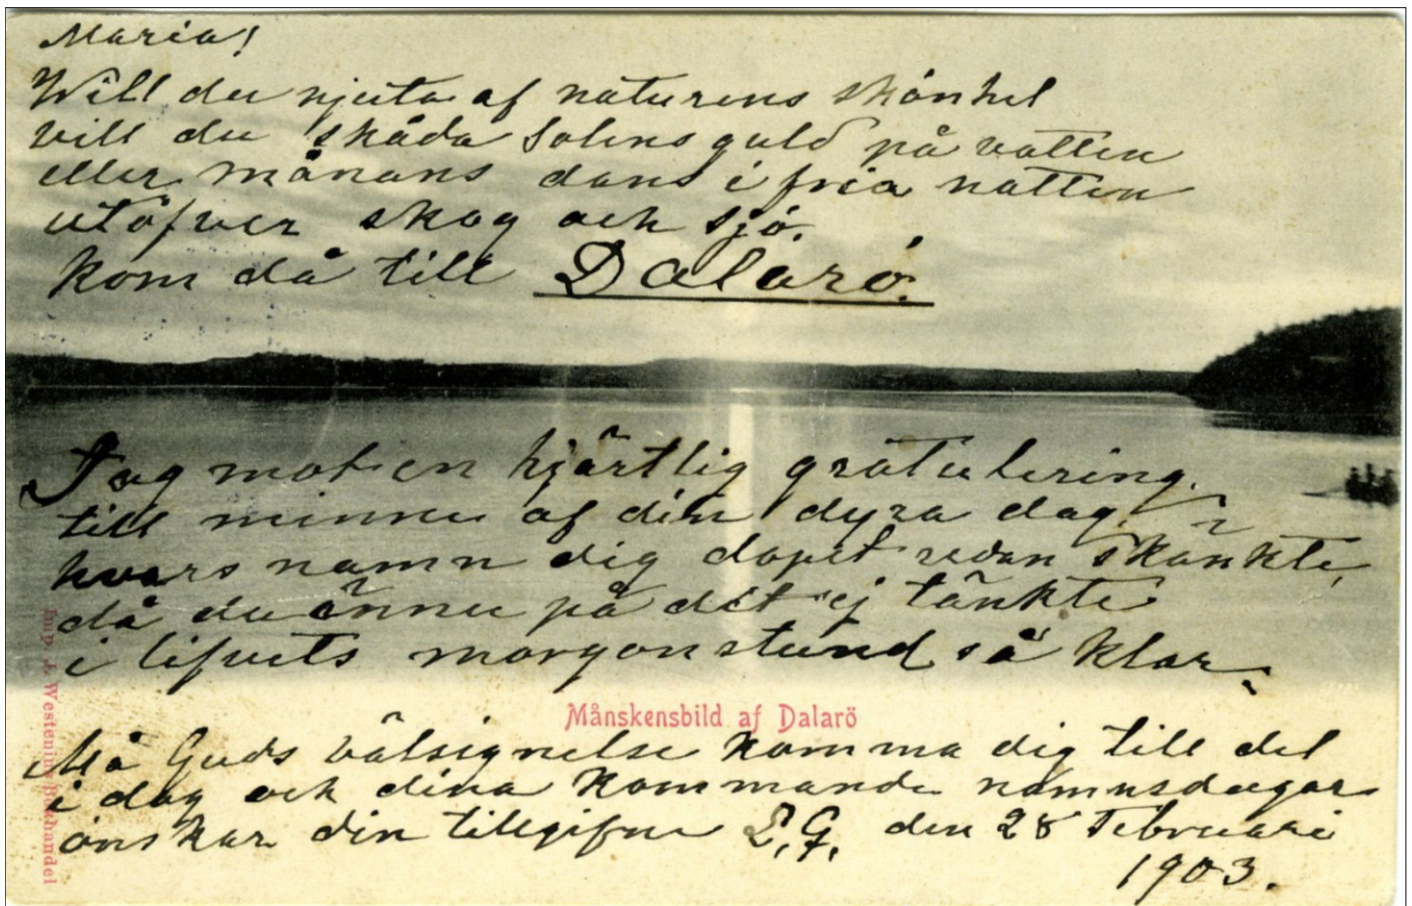 Maria!
Will du njuta af naturens skönhet
vill du skåda Solens guld på vatten
eller månans dans i fria natten
utöfver skog och sjö.
kom då till Dalarö.
Tag mot en hjärtlig gratulering.
till minne af din dyra dag
hvars namn dig dopet redan skänkte,
då du ännu på det ej tänkte
i lifvets morgonstund så klar.
Månskensbild af Dalarö
Må Guds välsignelse komma dig till del
i dag och dina kommande namnsdagar
önskar din tillgifne E. G. den 28 Februari
1903.
Imp. J. Westenius Bokhandel